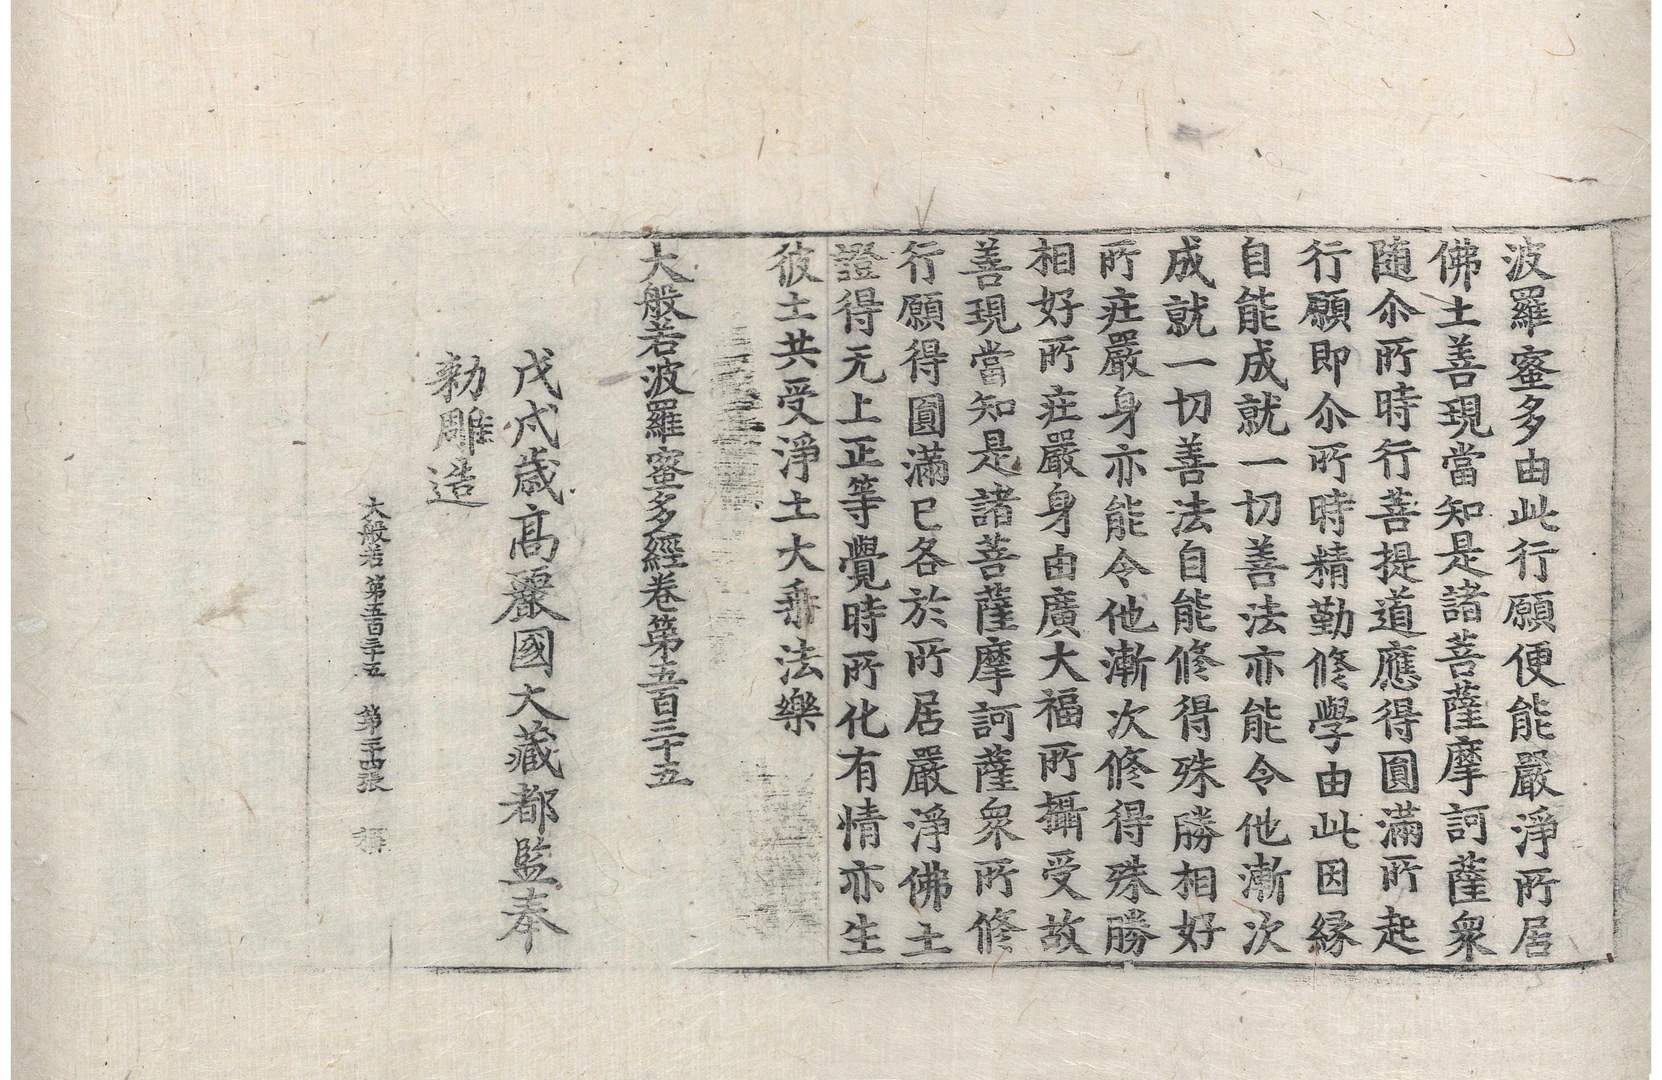 波羅蜜多由此行願便能嚴淨所居
佛土善現當知是諸菩薩摩訶薩衆
隨尒所時行菩提道應得圓滿所起
行願即尒所時精勤修學由此因縁
自能成就一切善法亦能令他漸次
成就一切善法自能修得殊勝相好
所莊嚴身亦能令他漸次修得殊勝
相好所莊嚴身由廣大福所攝受故
善現當知是諸菩薩摩訶薩衆所修
行願得圓滿已各於所居嚴淨佛土
證得无上正等覺時所化有情亦生
彼土共受淨土大乗法樂
大般若波羅蜜多經卷第五百三十五
戊戌歲高麗國大藏都監奉
勑雕造
大般若 第五百三十五 第二十四張